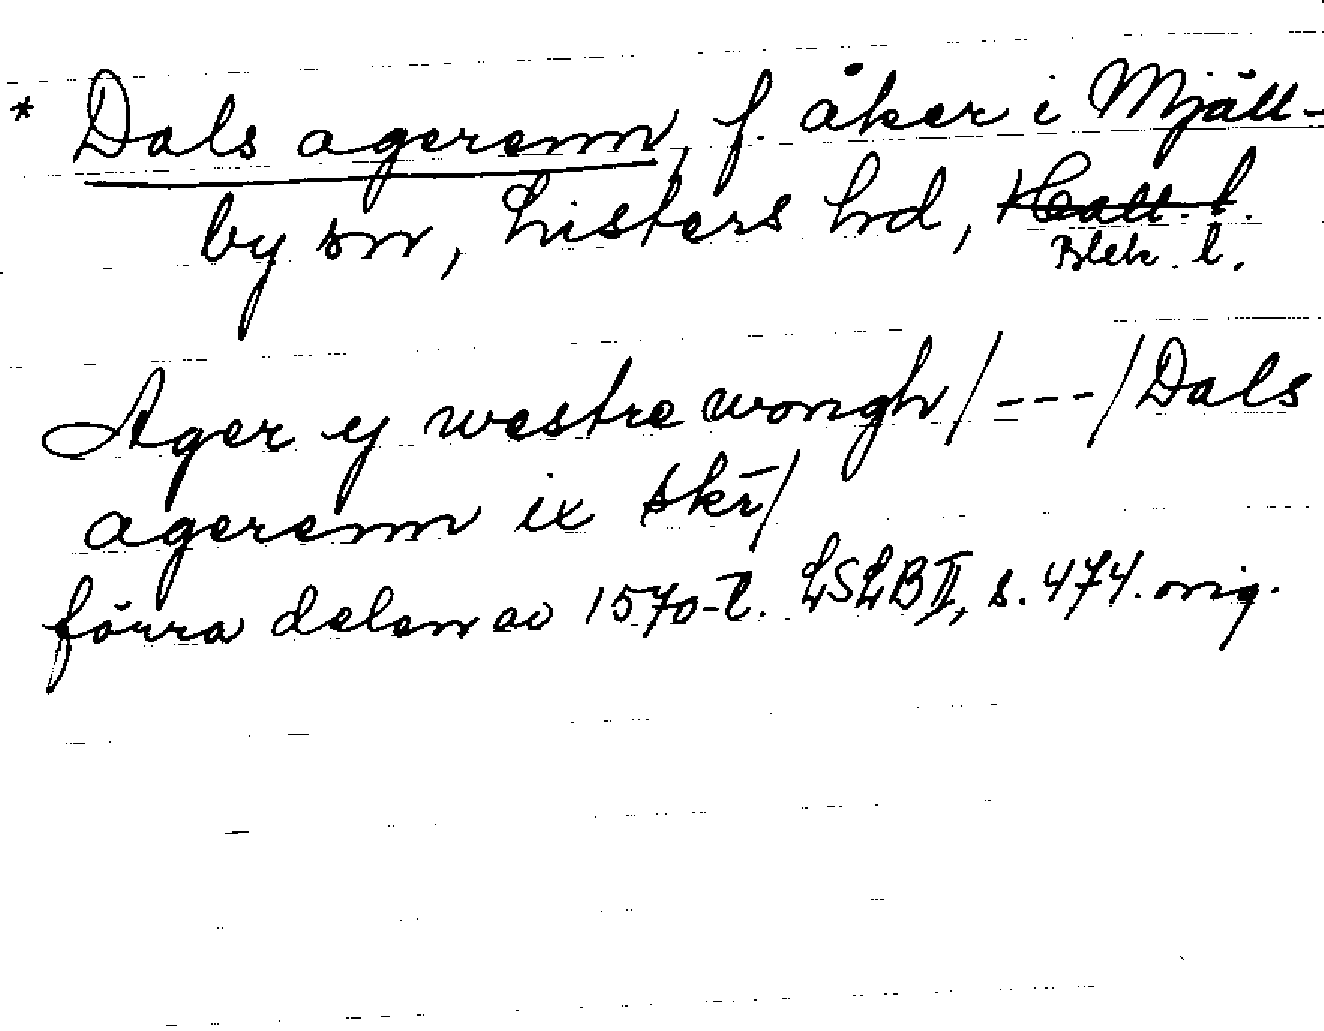 * Dals agerenn, f. åker i Mjäll-
by sn, Listers hd, Hall. l.
Blek. l.
Ager y westre wongh/---/Dals
agerenn ix skr̄/
förra delen av 1570-t. LSLB II, s. 474. orig.